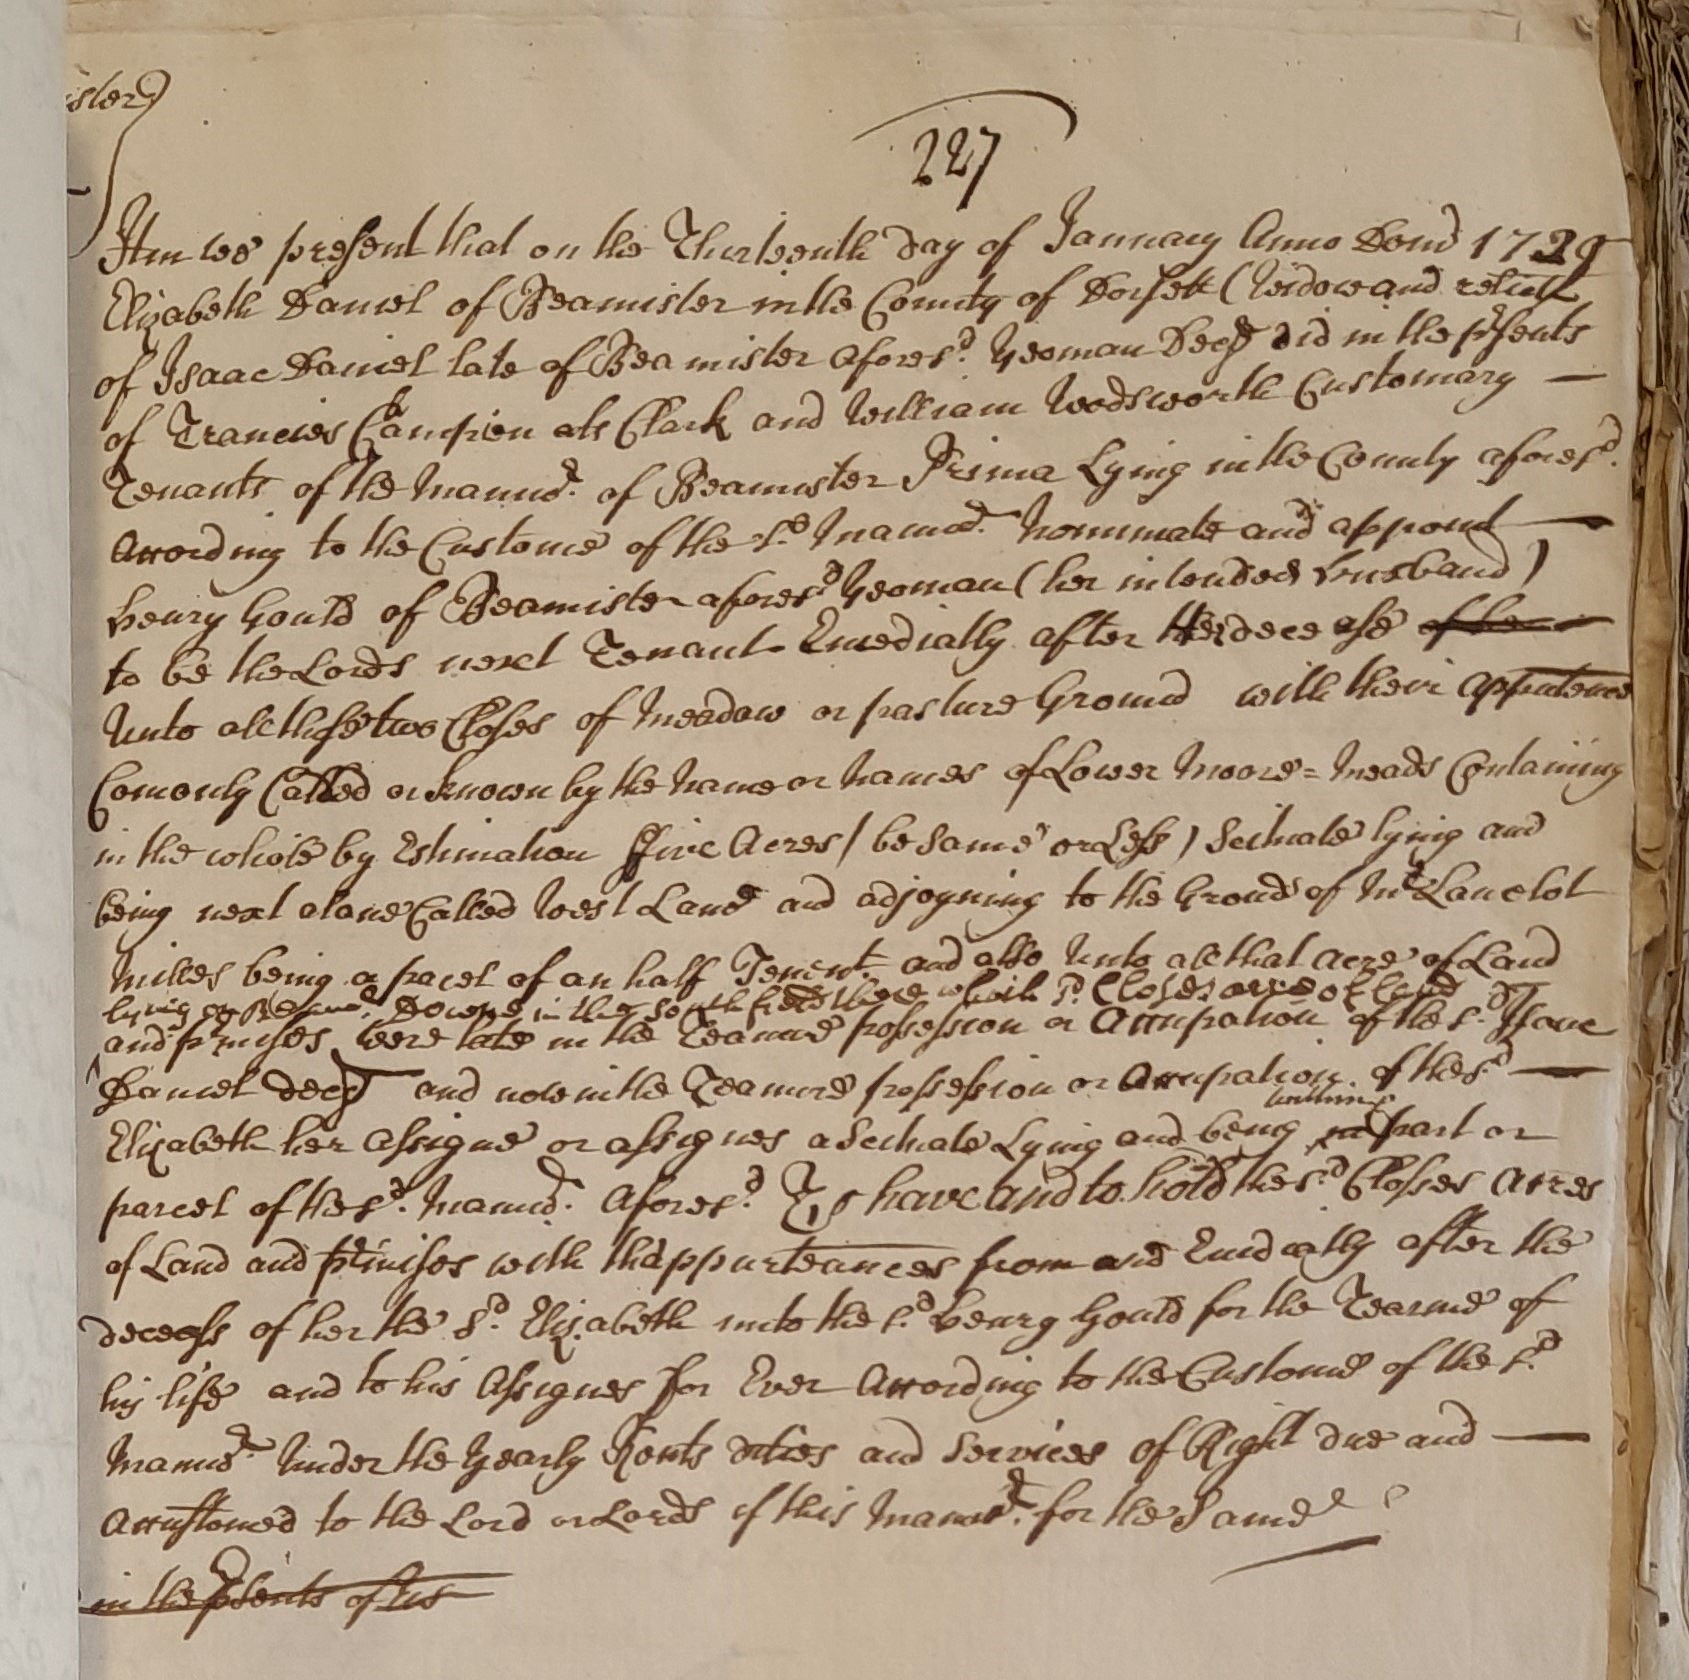 ister
227
Itm wee present that on the Thirteenth day of January Anno Domd 1729
Elizabeth Daniel of Beamister in the County of Dorsett (Widow and relict
of Isaac Daniel late of Beamister afores.d Yeoman Decd did in the psents
of Francies Campion als Clark and William Wodsworth Customary —
Tenants of the Mann.d of Beamister Prima Lying in the County afores.d
According to the Custome of the s.d Mann.d Nominate and appoint —
Henry Gould of Beamister afores.d Yeoman (her intended husband)
to be the Lords next Tenant Emedially after Her decease of her
Unto all those two Closes of Meadow or pasture Ground with their Appurtence
Comonly Called or known by the Name or Names of Lower Moore=Meads Containing
in the whole by Estimation ffive Acres / be same or Less) Scituate lying and
being next a lane Called West Lane and adjoyning to the Grond of Mr Lanclot
Milles being a pacel of an half Tenemt. and also Unto all that acre of Land
lying on Beamr. Downe in the South field there which s.d Closes acre of land
and p'mises were late in the Teanure possession or Accupation of the s.d Isaac
Daniel decd and now in the Teanure possession or Accupation of the s.d —
Elizabeth her Assigne or assignes a Scituate Lying and being in part or
parcel of the s.d Mann.d afores.d To have and to hold the s.d Closses Acres
of Land and p'mises with thappurteances from and Emidiatly after the
decease of her the s.d Elizabeth unto the s.d Henry Gould for the Tearme of
his life and to his Assignes for Ever According to the Custome of the s.d
Mann.d Under the yearly Rents duties and Services of Right due and —
Accustomed to the Lord or Lords of this Mann.d for the Same
in the psents of us